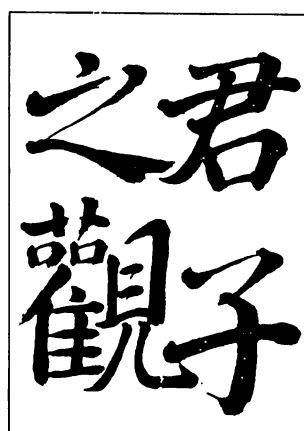 君子
之觀